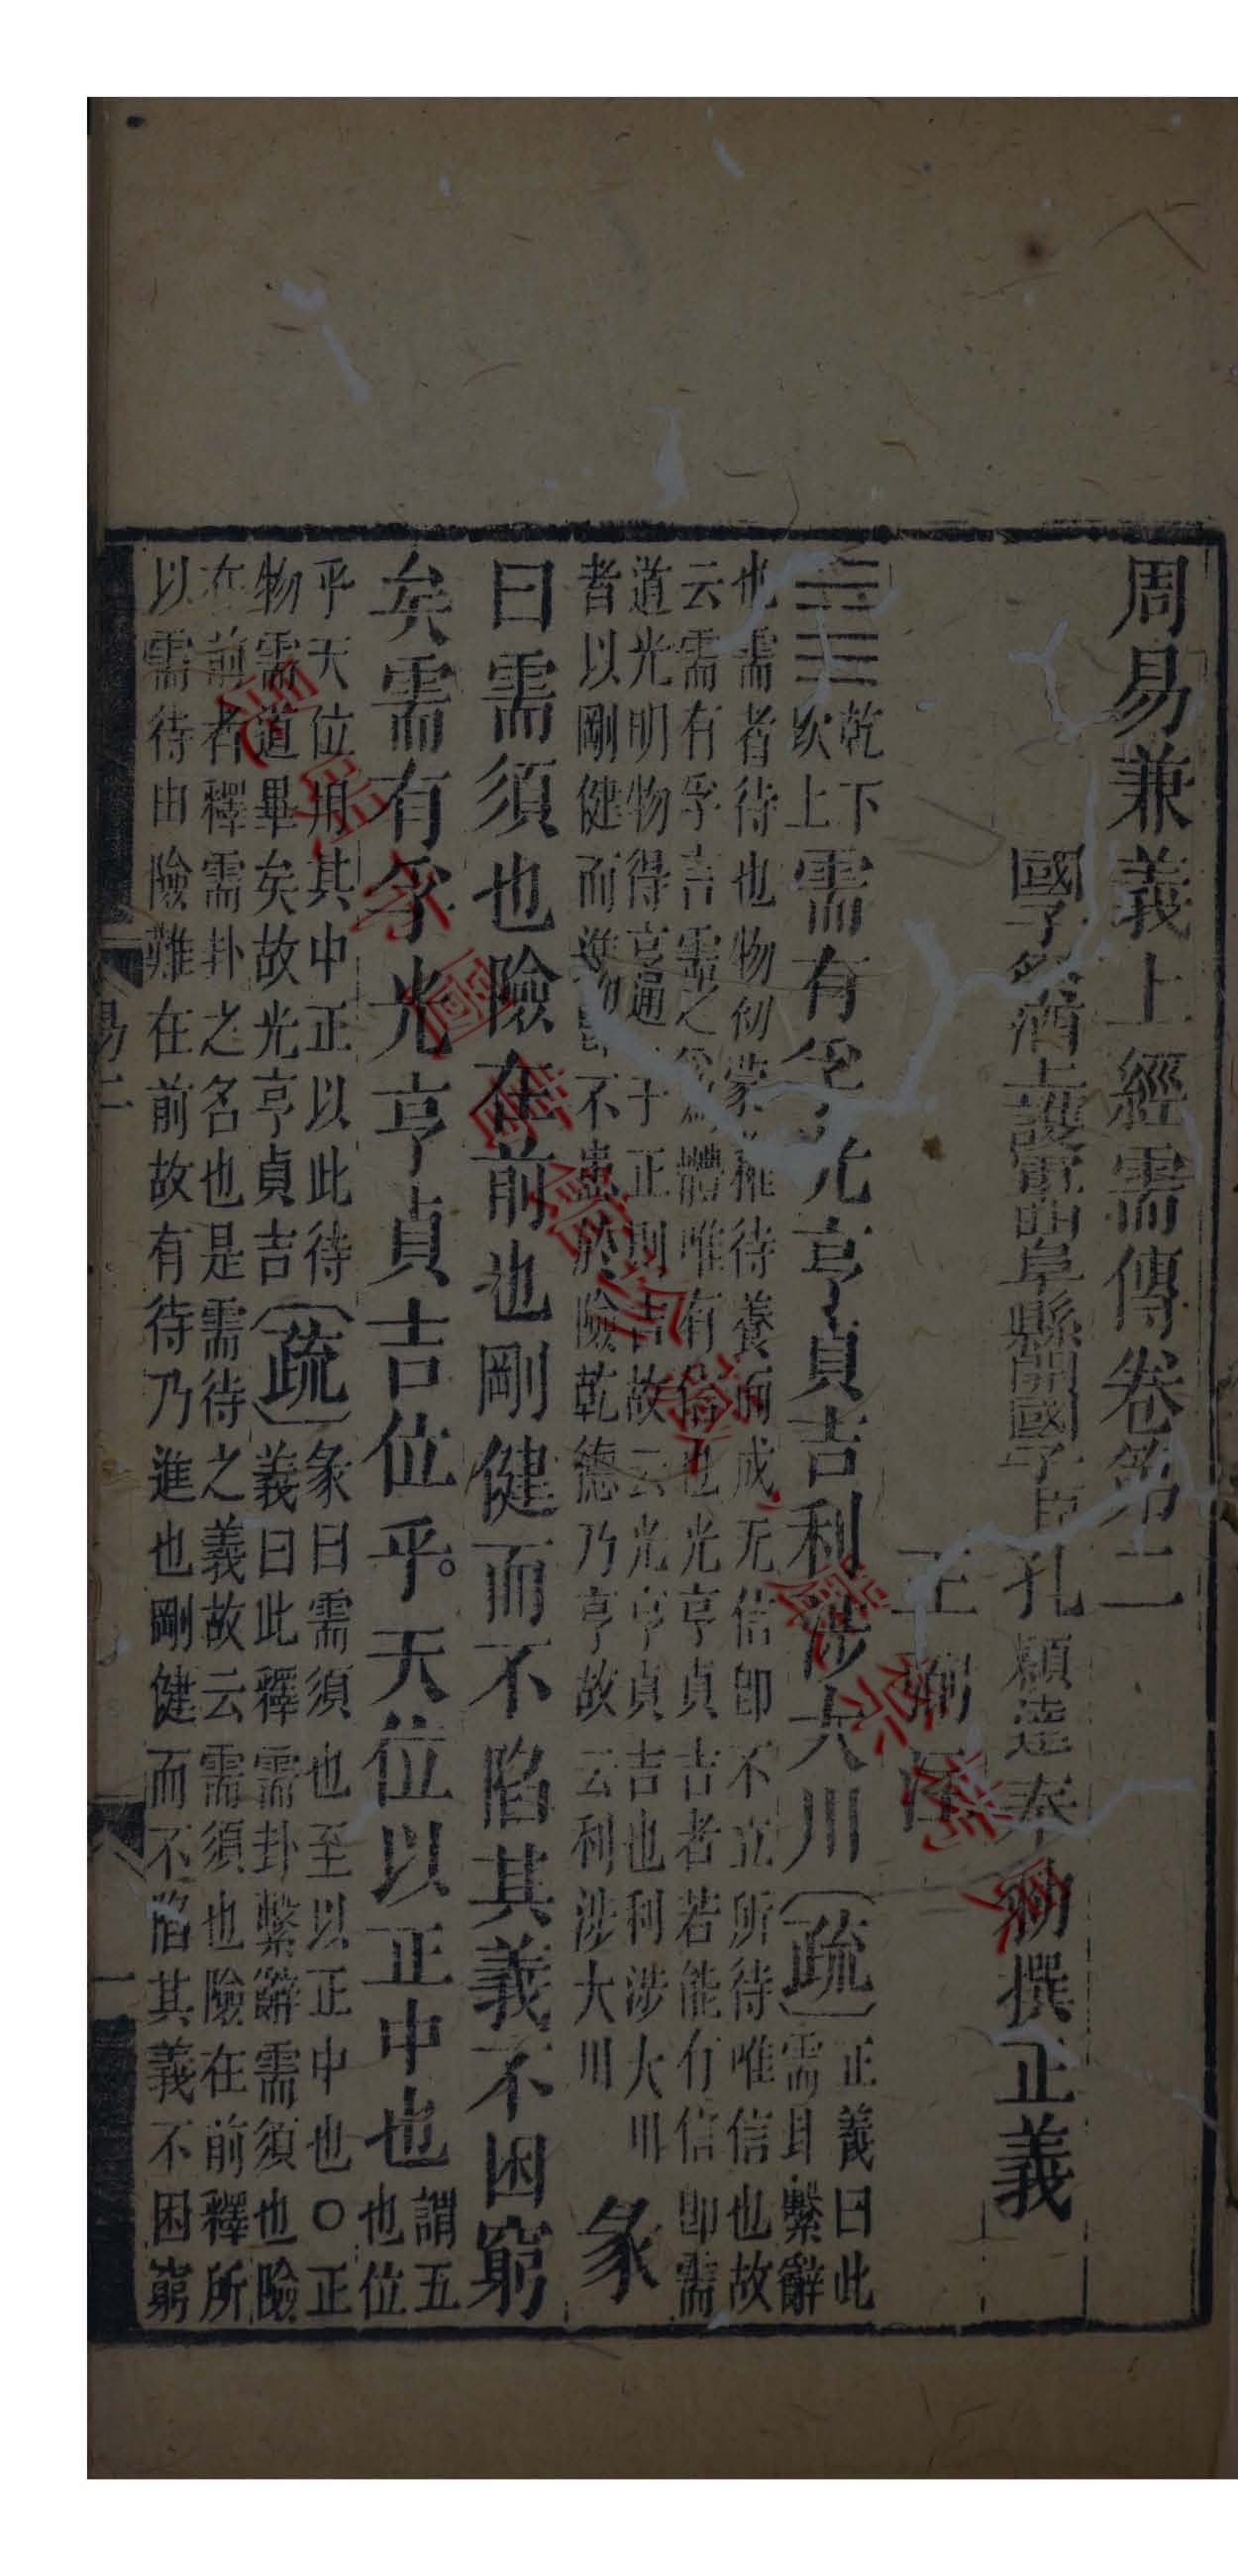 周易兼義上經需傳卷第二
國子祭酒上護軍曲阜縣開國子臣孔穎達奉勑撰正義
王弼注
䷄乾下坎上需有孚光亨貞吉利涉大川〔疏〕正義曰此需卦繫辭
也需者待也物初蒙稚待養而成无信即不立所待唯信也故
云需有孚吉需之爲體唯有信也光亨貞吉者若能有信即需
道光明物得亨通于正則吉故云光亨貞吉也利涉大川
者以剛健而進即不患於險乾德乃亨故云利涉大川彖
曰需須也險在前也剛健而不陷其義不困窮
矣需有孚光亨貞吉位乎天位以正中也謂五也位
乎天位用其中正以此待
物需道畢矣故光亨貞吉〔疏〕彖曰需須也至以正中也○正
義曰此釋需卦繫辭需須也險
在前者釋需卦之名也是需待之義故云需須也險在前釋所
以需待由險難在前故有待乃進也剛健而不陷其義不困窮
易二
一